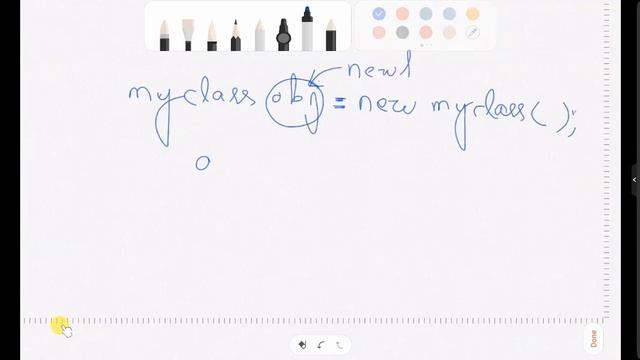 newl
myclass obj = new myclass();
o
Done